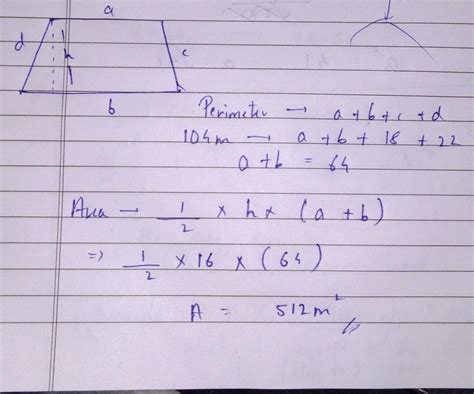 a
d
h
c
b
Perimeter → a + b + c + d
104m → a + b + 18 + 22
a + b = 64
Area → 1/2 × h × (a + b)
⇒ 1/2 × 16 × (64)
A = 512m²